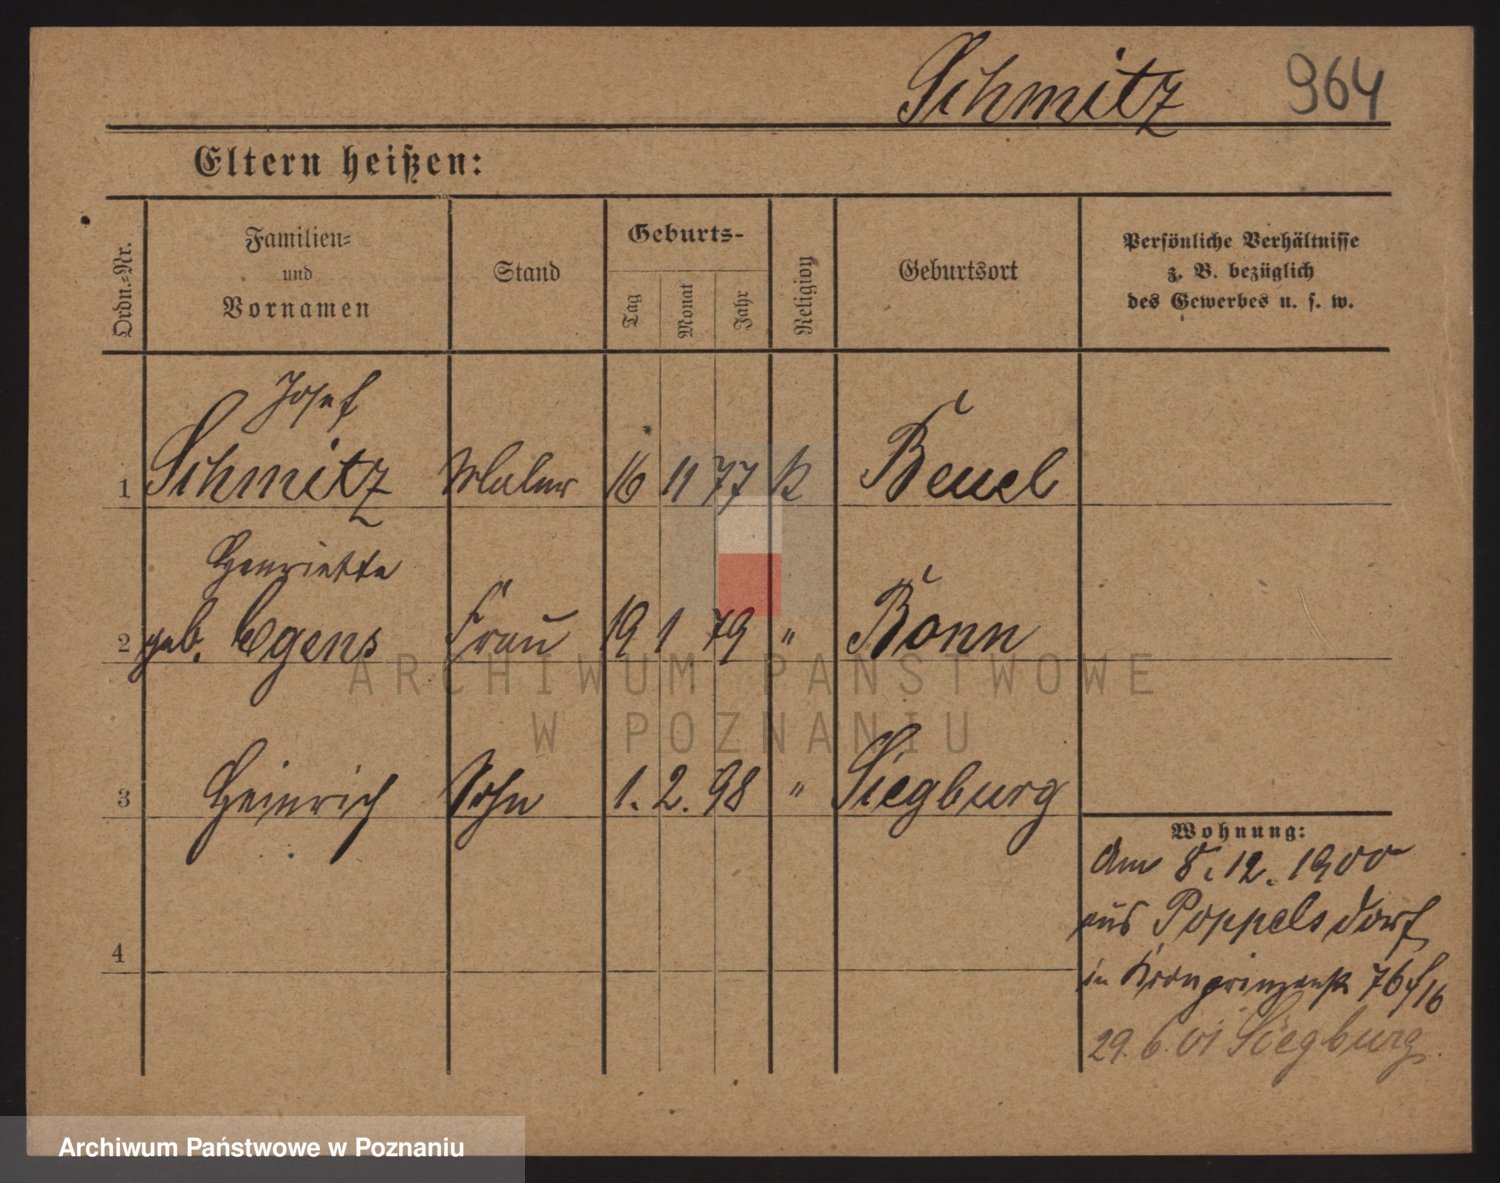 Schmitz 964
Eltern heißen:
Ordn.-Nr.
Familien-
und
Vornamen
Stand
Geburts-
Tag
Monat
Jahr
Religion
Geburtsort
Persönliche Verhältnisse
z. B. bezüglich
des Gewerbes u. s. w.
Josef
1 Schmitz Maler 16 11 77 k Beuel
Henriette
2 geb. Egens Frau 19 1 79 " Bonn
3 Heinrich Sohn 1. 2. 98 " Siegburg
4
Wohnung:
Am 8. 12. 1900
aus Poppelsdorf
in Kronprinzenst 76
29. 6. 01 Siegburg.
ARCHIWUM PAŃSTWOWE
W POZNANIU
Archiwum Państwowe w Poznaniu